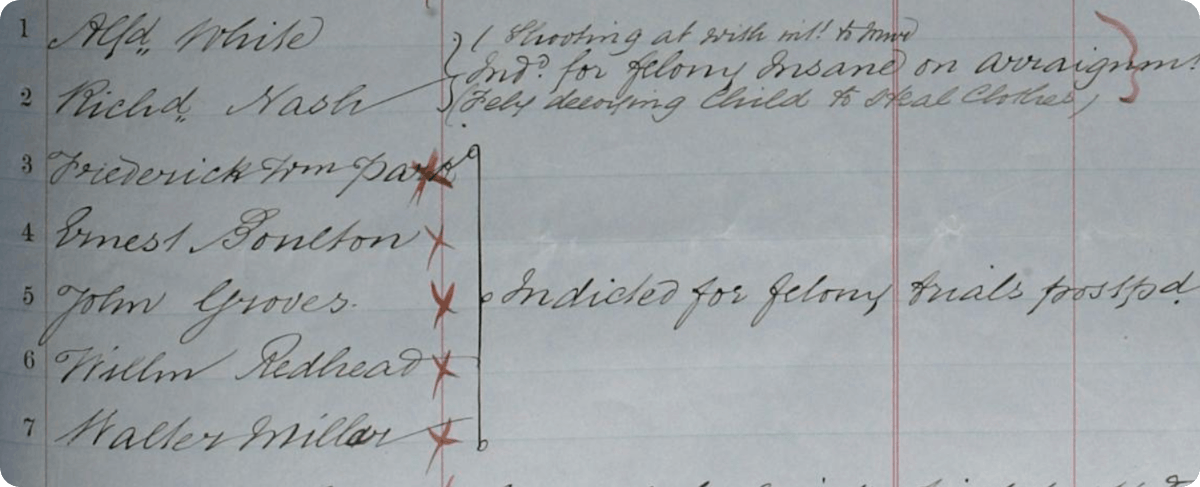 1 Alfd,, White (Shooting at with int! to murd
Indd. for felony Insane on arraignmt
2 Richd,, Nash (Fely decoying Child to Steal Clothes)
3 Frederick Wm Park
4 Ernest Boulton
5 John Groves. Indicted for felony trials postpd.
6 Willm Redhead
7 Walter Miller